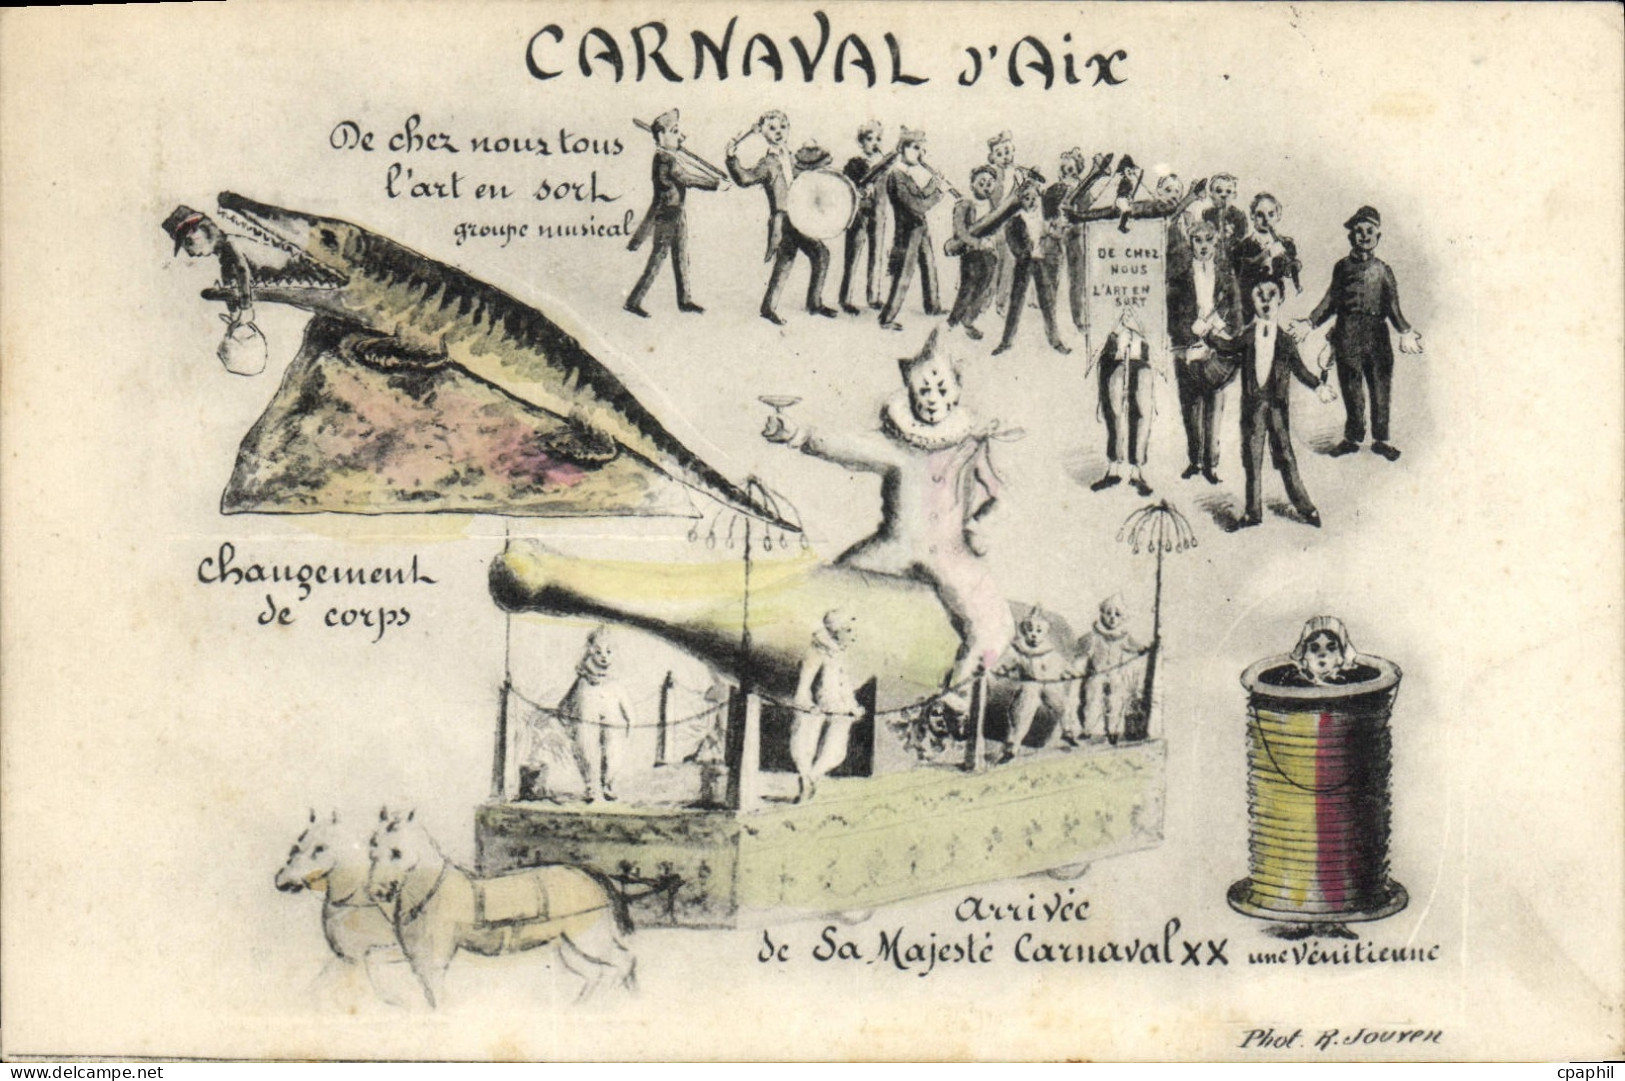 CARNAVAL D'AiX
De chez nous tous
l'art en sort
groupe musical
DE CHEZ
NOUS
L'ART EN
SORT
Changement
de corps
Arrivée
de Sa Majesté Carnaval XX
une Vénitienne
Phot. R. Jouven
delcampe.net
cpaphil